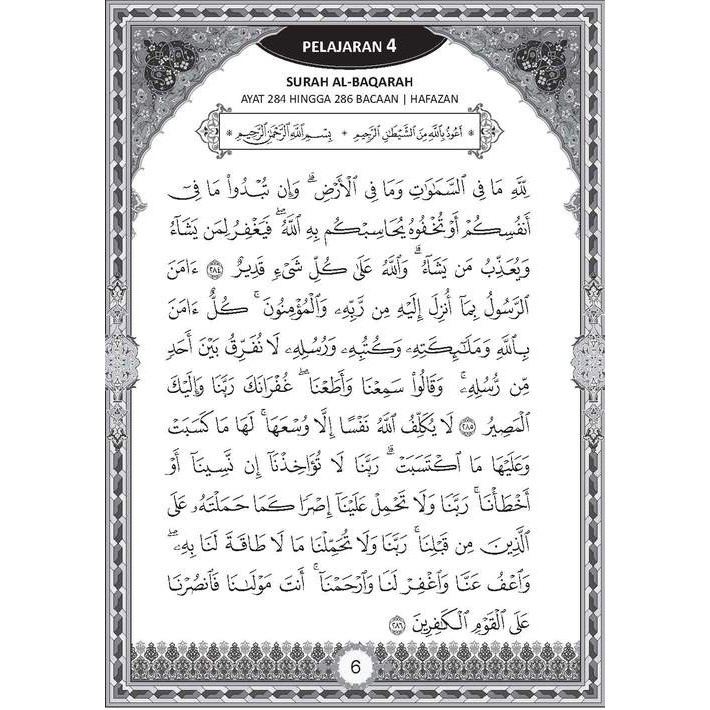 PELAJARAN 4
SURAH AL-BAQARAH
AYAT 284 HINGGA 286 BACAAN | HAFAZAN
* أَعُوذُ بِاللَّهِ مِنَ الشَّيْطَانِ الرَّجِيمِ * بِسْمِ اللَّهِ الرَّحْمَٰنِ الرَّحِيمِ *
لِّلَّهِ مَا فِى ٱلسَّمَٰوَٰتِ وَمَا فِى ٱلْأَرْضِ ۗ وَإِن تُبْدُوا۟ مَا فِىٓ
أَنفُسِكُمْ أَوْ تُخْفُوهُ يُحَاسِبْكُم بِهِ ٱللَّهُ ۖ فَيَغْفِرُ لِمَن يَشَآءُ
وَيُعَذِّبُ مَن يَشَآءُ ۗ وَٱللَّهُ عَلَىٰ كُلِّ شَىْءٍ قَدِيرٌ ٢٨٤ ءَامَنَ
ٱلرَّسُولُ بِمَآ أُنزِلَ إِلَيْهِ مِن رَّبِّهِۦ وَٱلْمُؤْمِنُونَ ۚ كُلٌّ ءَامَنَ
بِٱللَّهِ وَمَلَٰٓئِكَتِهِۦ وَكُتُبِهِۦ وَرُسُلِهِۦ لَا نُفَرِّقُ بَيْنَ أَحَدٍ
مِّن رُّسُلِهِۦ ۚ وَقَالُوا۟ سَمِعْنَا وَأَطَعْنَا ۖ غُفْرَانَكَ رَبَّنَا وَإِلَيْكَ
ٱلْمَصِيرُ ٢٨٥ لَا يُكَلِّفُ ٱللَّهُ نَفْسًا إِلَّا وُسْعَهَا ۚ لَهَا مَا كَسَبَتْ
وَعَلَيْهَا مَا ٱكْتَسَبَتْ ۗ رَبَّنَا لَا تُؤَاخِذْنَآ إِن نَّسِينَآ أَوْ
أَخْطَأْنَا ۚ رَبَّنَا وَلَا تَحْمِلْ عَلَيْنَآ إِصْرًا كَمَا حَمَلْتَهُۥ عَلَى
ٱلَّذِينَ مِن قَبْلِنَا ۚ رَبَّنَا وَلَا تُحَمِّلْنَا مَا لَا طَاقَةَ لَنَا بِهِۦ ۖ
وَٱعْفُ عَنَّا وَٱغْفِرْ لَنَا وَٱرْحَمْنَآ ۚ أَنتَ مَوْلَىٰنَا فَٱنصُرْنَا
عَلَى ٱلْقَوْمِ ٱلْكَٰفِرِينَ ٢٨٦
6